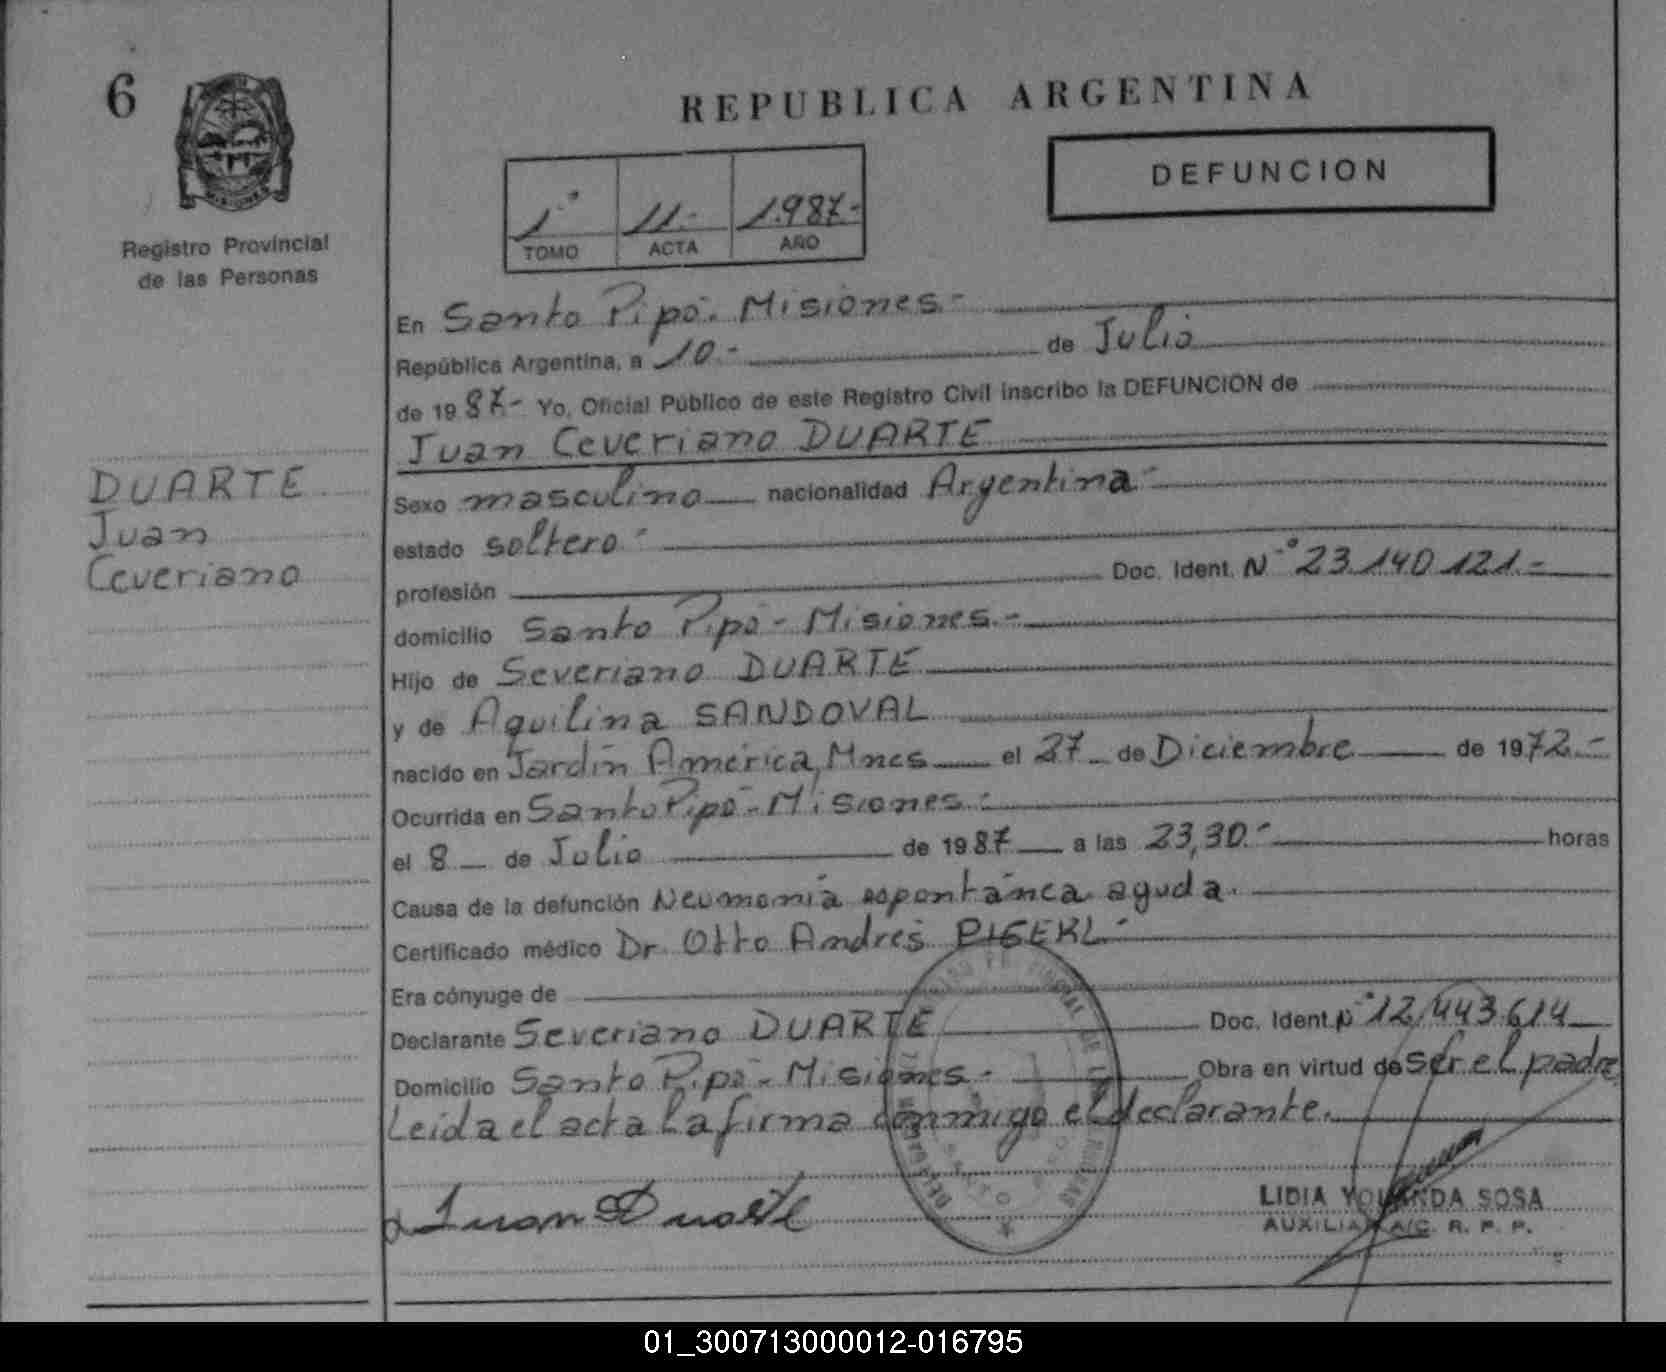 6
REPUBLICA ARGENTINA
DEFUNCION
1° 11.- 1.987.-
TOMO ACTA AÑO
Registro Provincial
de las Personas
En Santo Pipó. Misiones.-
República Argentina, a 10.- de Julio
de 1987.- Yo, Oficial Público de este Registro Civil inscribo la DEFUNCION de
Juan Ceveriano DUARTE
DUARTE
Juan
Ceveriano
Sexo masculino nacionalidad Argentina.-
estado soltero.-
profesión Doc. Ident. N° 23.140.121.-
domicilio Santo Pipó - Misiones.-
Hijo de Severiano DUARTE
y de Aquilina SANDOVAL
nacido en Jardín América, Mnes el 27 de Diciembre de 1972.-
Ocurrida en Santo Pipó - Misiones.-
el 8 de Julio de 1987 a las 23,30.- horas
Causa de la defunción Neumonía espontánea aguda.
Certificado médico Dr. Otto Andrés
Era cónyuge de
Declarante Severiano DUARTE Doc. Ident. N° 12.443.614
Domicilio Santo Pipó - Misiones.- Obra en virtud de ser el padre
Leida el acta la firma conmigo el declarante.
Juan Duarte
LIDIA YOLANDA SOSA
AUXILIAR A/C. R. P. P.
01_300713000012-016795